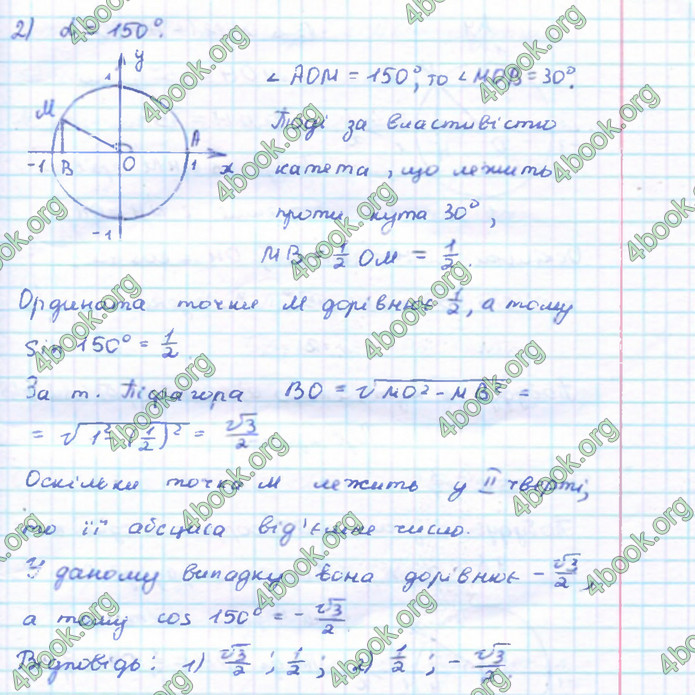 2) α = 150°.
y
1
M
A
-1 B O 1 x
-1
∠ AOM = 150°, то ∠ MOB = 30°.
Тоді за властивістю
катета, що лежить
проти кута 30°,
MB = 1/2 OM = 1/2.
Ордината точки M дорівнює 1/2, а тому
sin 150° = 1/2.
За т. Піфагора BO = √(MO² - MB²) =
= √(1² - (1/2)²) = √3/2
Оскільки точка M лежить у II чверті,
то її абсциса від'ємне число.
У даному випадку вона дорівнює - √3/2,
а тому cos 150° = - √3/2.
Відповідь: 1) √3/2 ; 1/2 ; 2) 1/2 ; - √3/2.
4book.org